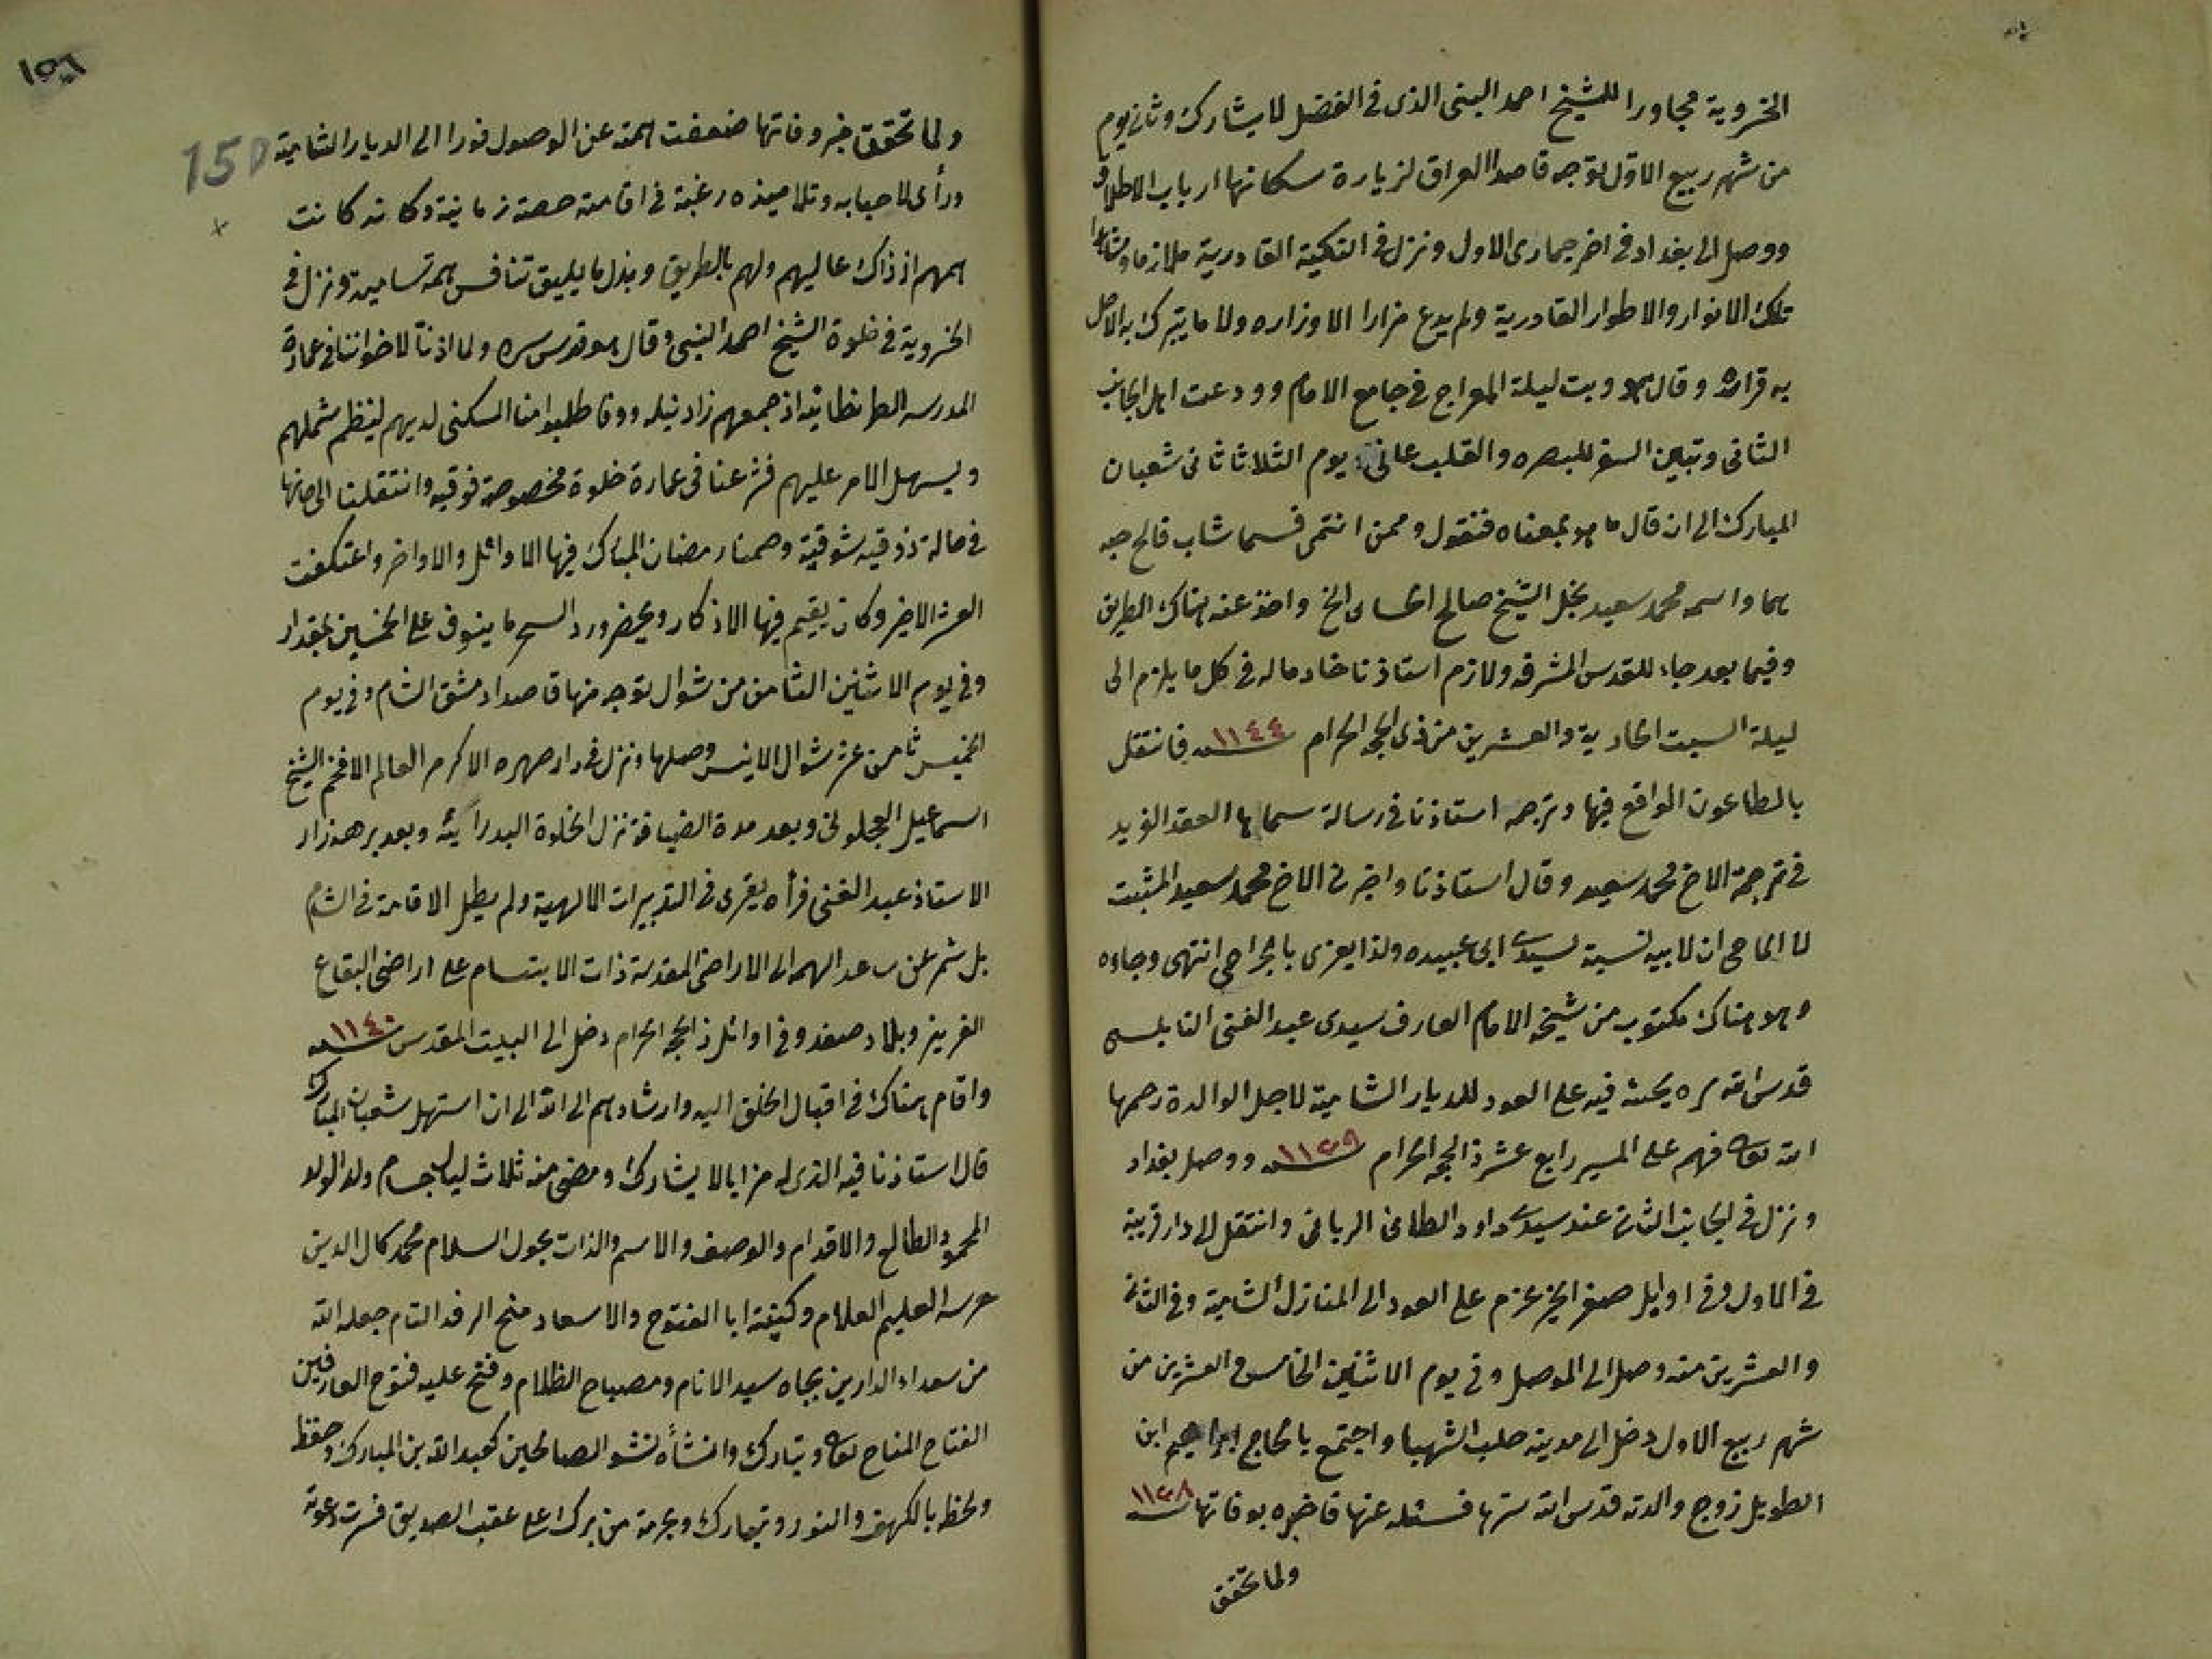 الخسروية مجاورا للشيخ احمد البنى الذى فى الفضل لا يشارك وثانى يوم
من شهر ربيع الاول توجه قاصدا العراق لزيارة سكانها ارباب الاطلاق
ووصل الى بغداد فى اخر جمادى الاول ونزل فى التكية القادرية ملازما ومشاهدا
تلك الانوار والاطوار القادرية ولم يدع مزارا الا وزاره ولا ما يتبرك به الاصل
به قراره وقال وبت ليلة المعراج فى جامع الامام وودعت اهل الجانب
الثانى وتبين السفر للبصره والقلب عانى يوم الثلاثا ثانى شعبان
المبارك الى ان قال ما هو بمعناه فنقول وممن انتمى شاب فالح
واسمه محمد سعيد نجل الشيخ صالح الخ واخذ عنه هناك الطريق
وفيما بعد جاء للقدس المشرفه ولازم استاذنا خادما له فى كل ما يلزم الى
ليلة السبت الحادية والعشرين من ذى الحجه الحرام ١١٤٤ سنه فانتقل
بالطاعون الواقع فيها وترجمه استاذنا فى رسالة سماها العقد الفريد
فى ترجمة الاخ محمد سعيد وقال استاذنا واخبرنى الاخ محمد سعيد المثبت
لا الماحى ان لابيه نسبة لسيدى ابى عبيده ولذا يعزى بالجراحى انتهى وجاءه
هناك مكتوب من شيخه الامام العارف سيدى عبد الغنى النابلسى
قدس الله سره يحثه فيه على العود للديار الشامية لاجل الوالدة رحمها
الله تعالى فهم على المسير رابع عشر ذى الحجه الحرام سنه ووصل بغداد
ونزل فى الجانب الثانى عند سيدى داود الطائى الربانى وانتقل الى دار قريبة
فى الاول وفى اوايل صفر الخير عزم على العود الى المنازل الشامية وفى الثانى
والعشرين منه وصل الى الموصل وفى يوم الاثنين الخامس والعشرين من
شهر ربيع الاول دخل الى مدينة حلب الشهبا واجتمع بالحاج ابراهيم ابن
الطويل زوج والدته قدس الله سرها فسئله عنها فاخبره بوفاتها سنه
ولما تحقق
١٥٦
150
ولما تحقق خبر وفاتها ضعفت همته عن الوصول فورا الى الديار الشامية
ورأى لاحبابه وتلاميذه رغبة فى اقامته حصة زمانية وكانه كانت
همهم اذ ذاك عاليهم ولهم بالطريق وبذل ما يليق تنافس همة سامية ونزل فى
الخسروية فى خلوة الشيخ احمد البنى وقال هو قدس سره ولما اذنا لاخواننا فى عمارة
المدرسه الطرنطائية اذ جمعهم زاد نيله ووفا طلبوا منا السكنى لديهم لينظم شملهم
ويسهل الامر عليهم فشرعنا فى عمارة خلوة مخصوصة فوقيه وانتقلنا الى
فى حالة ذوقيه شوقية وصمنا رمضان المبارك فيها الاوائل والاواخر واعتكفت
العشر الاخير وكان يقيم فيها الاذكار ويحضر ورد السحر ما ينوف على الخمسين بمقدار
وفى يوم الاثنين الثامن من شوال توجه منها قاصدا دمشق الشام وفى يوم
الخميس ثامن عشر شوال الانيس وصلها ونزل فى دار صهره الاكرم العالم الافخم الشيخ
اسماعيل العجلونى وبعد مدة الضيافة نزل الخلوة البدرائية وبعد برهه زار
الاستاذ عبد الغنى فرأه يقرى فى التدبيرات الالهية ولم يطل الاقامة فى الشام
بل شمر عن ساعد الهمه الى الاراضى المقدسة ذات الابتسام على اراضى البقاع
العزيز وبلاد صفد وفى اوائل ذى الحجه الحرام دخل الى البيت المقدس سنه ١١٤٠
واقام هناك فى اقبال الخلق اليه وارشادهم الى الله الى ان استهل شعبان المبارك
قال استاذنا فيه الذى له مزايا لا يشارك ومضى منه ثلاث ليال جسام ولد الولد
المحمود الطالع والاقدام والوصف والاسم والذات بحول السلام محمد كمال الدين
حرسه العليم العلام وكنيته ابا الفتوح والاسعاد منح الرفد التام جعله الله
من سعداء الدارين بجاه سيد الانام ومصباح الظلام وفتح عليه فتوح العارفين
الفتاح المناح تعالى وتبارك وانشأه نشو الصالحين كعبد الله بن المبارك وحفظ
ولحظ بالكهف والنور وتبارك وبحرمة من برك على عقب الصديق فسرت دعوته